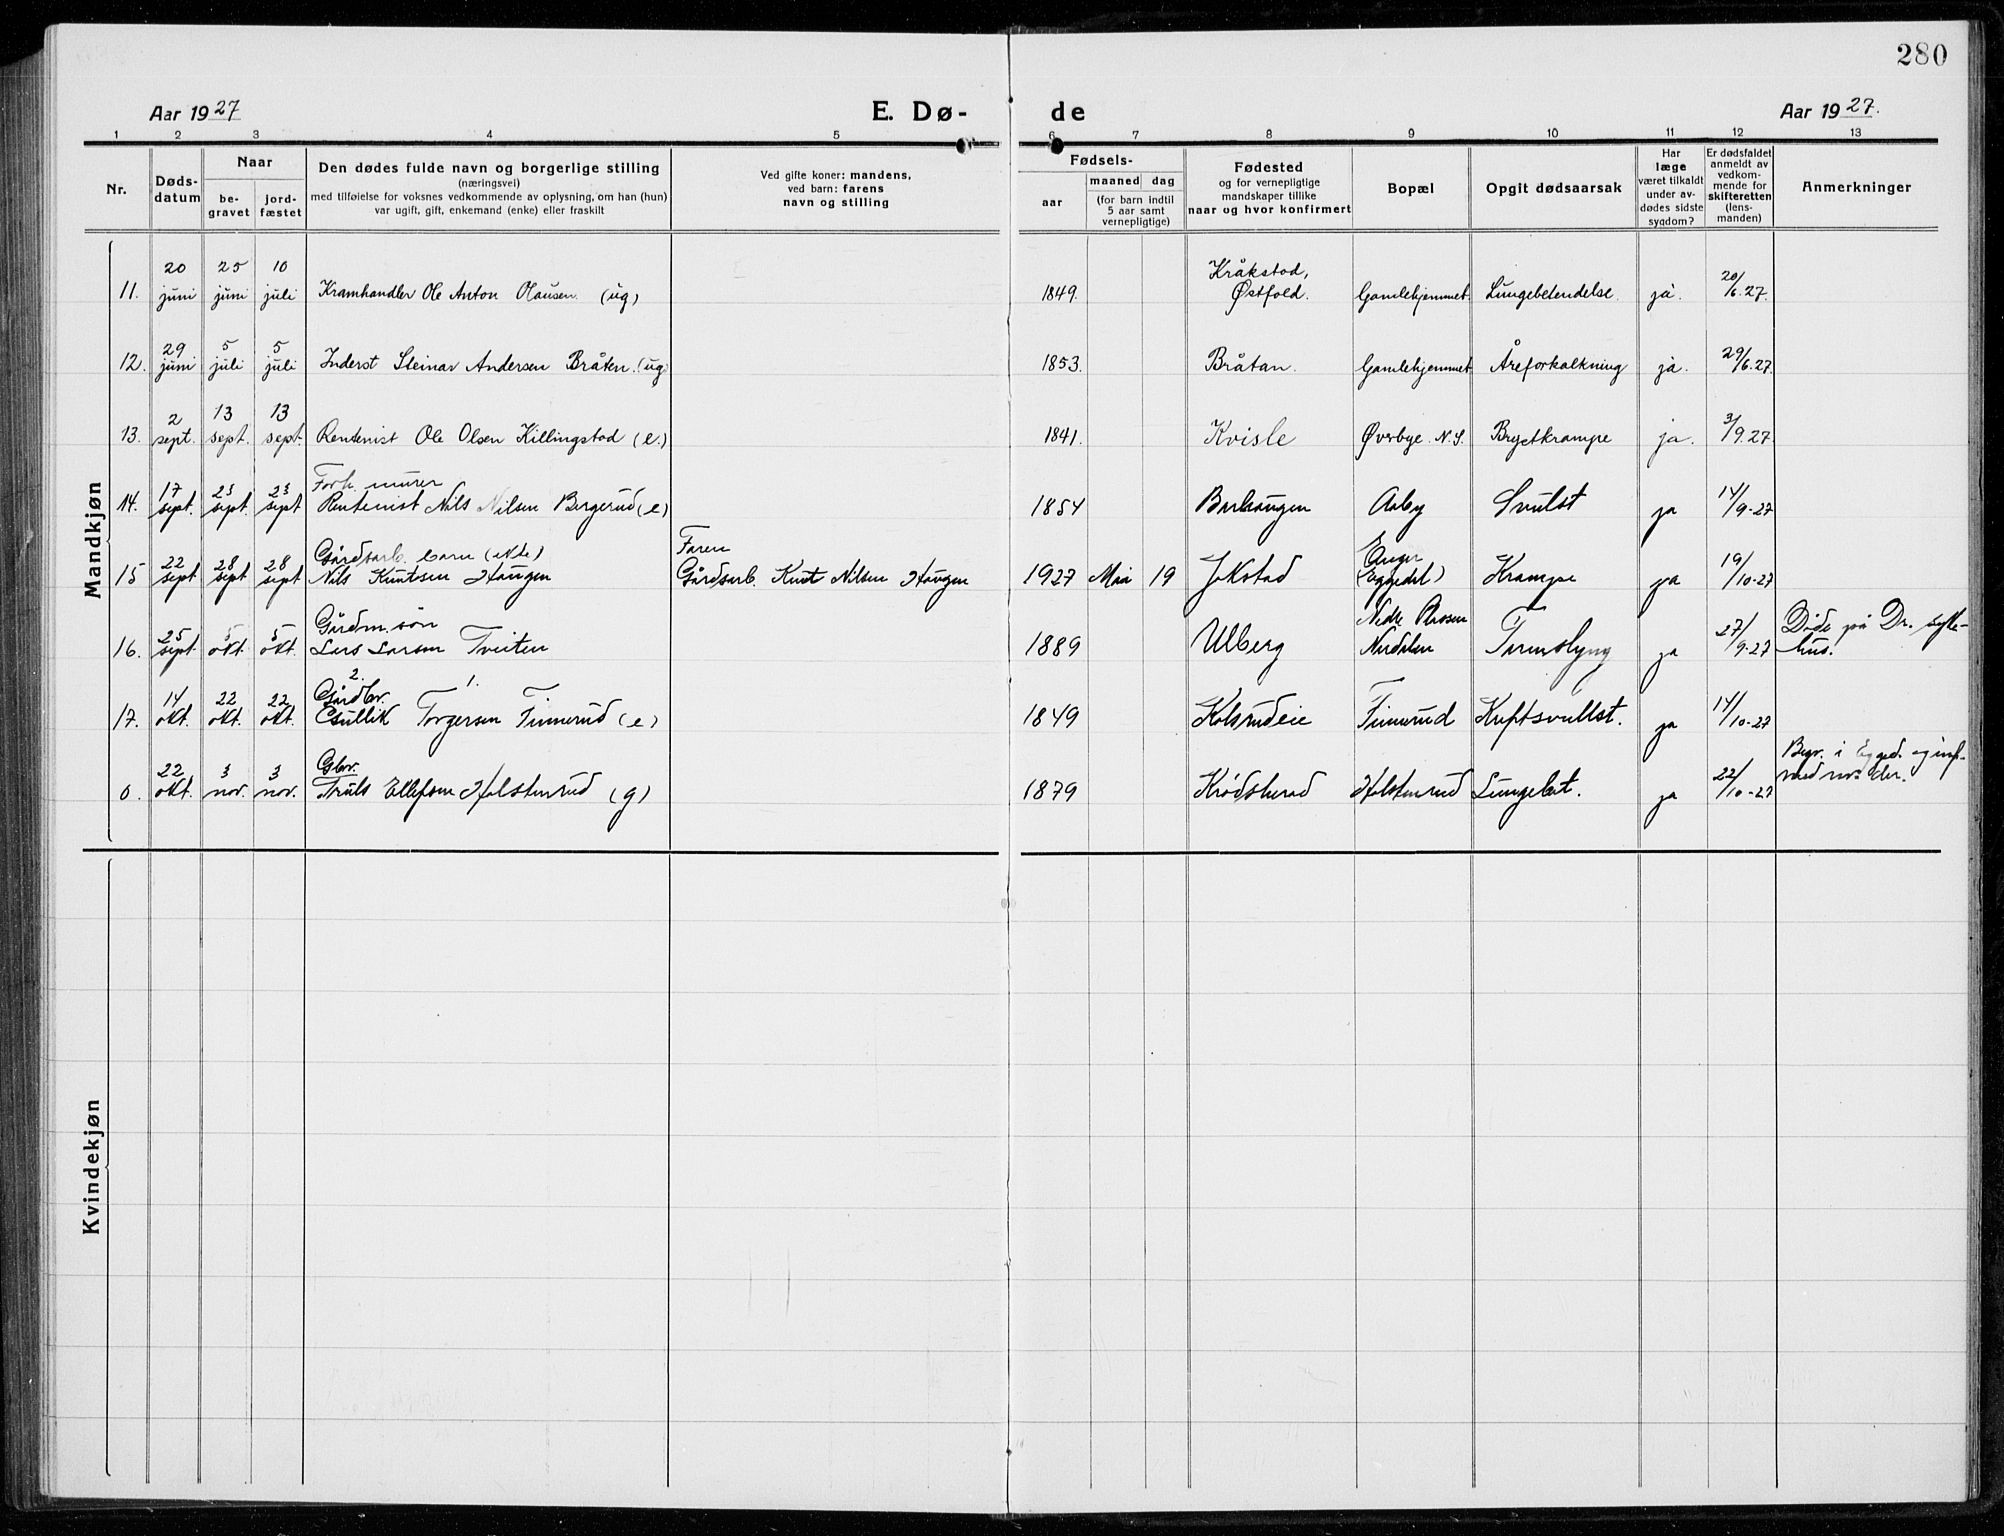 280
Aar 1927
E. Dø-
de
Aar 1927.
1 2 3 4 5 6 7 8 9 10 11 12 13
Nr.
Døds-
datum
Naar
be-
gravet
jord-
fæstet
Den dødes fulde navn og borgerlige stilling
(næringsvei)
med tilføielse for voksnes vedkommende av oplysning, om han (hun)
var ugift, gift, enkemand (enke) eller fraskilt
Ved gifte koner: mandens,
ved barn: farens
navn og stilling
Fødsels-
aar
maaned dag
(for barn indtil
5 aar samt
vernepligtige)
Fødested
og for vernepligtige
mandskaper tillike
naar og hvor konfirmert
Bopæl
Opgit dødsaarsak
Har
læge
været tilkaldt
under av-
dødes sidste
sygdom?
Er dødsfaldet
anmeldt av
vedkom-
mende for
skifteretten
(lens-
manden)
Anmerkninger
Mandkjøn
20 25 10 Kråkstad,
11. juni juni juli Kramhandler Ole Anton Olausen (ug) 1849. Østfold. Gamlehjemmet Lungebetendelse ja. 20/6.27.
29 5 5
12. juni juli juli Inderst Steinar Andersen Bråten (ug) 1853. Bråtan. Gamlehjemmet Åreforkalkning ja. 29/6.27.
2 13 13
13. sept. sept. sept. Rentenist Ole Olsen Killingstad (e.) 1841. Kvisle Øverbye N.S. Brystkrampe ja. 3/9.27
17 23 23 Forh. murer
14. sept. sept. sept Rentenist Nils Nilsen Bergerud (e) 1854 Aaby Svulst ja 14/9-27
22 28 28 Gårdsarb. barn (ekte) Faren
15 sept sept sept Nils Knutsen Haugen Gårdsarb. Knut Nilsen Haugen 1927 Mai 19 Jokstad Eggedal) Krampe ja 19/10-27
25 5 5 Gårdm. søn Nedre
16. sept. okt. okt. Lars Larsen Tveiten 1889 Ulberg Tarmslyng ja 27/9-27 Døde på Dr. syke-
hus.
14 22 22 2. Gårdbr. 1.
17. okt. okt. okt. Gullik Torgersen Finnerud (e) 1849 Kolsrudeie Finnerud Kreftsvullst. ja 14/10-27
22 3 3 Gbr. Begr. i Egged. og indf.
0. okt. nov. nov. Truls Ellefsen Holstenrud (g) 1879 Krødsherad Holstenrud Lungebet. ja 22/10-27 med no. der.
Kvindekjøn